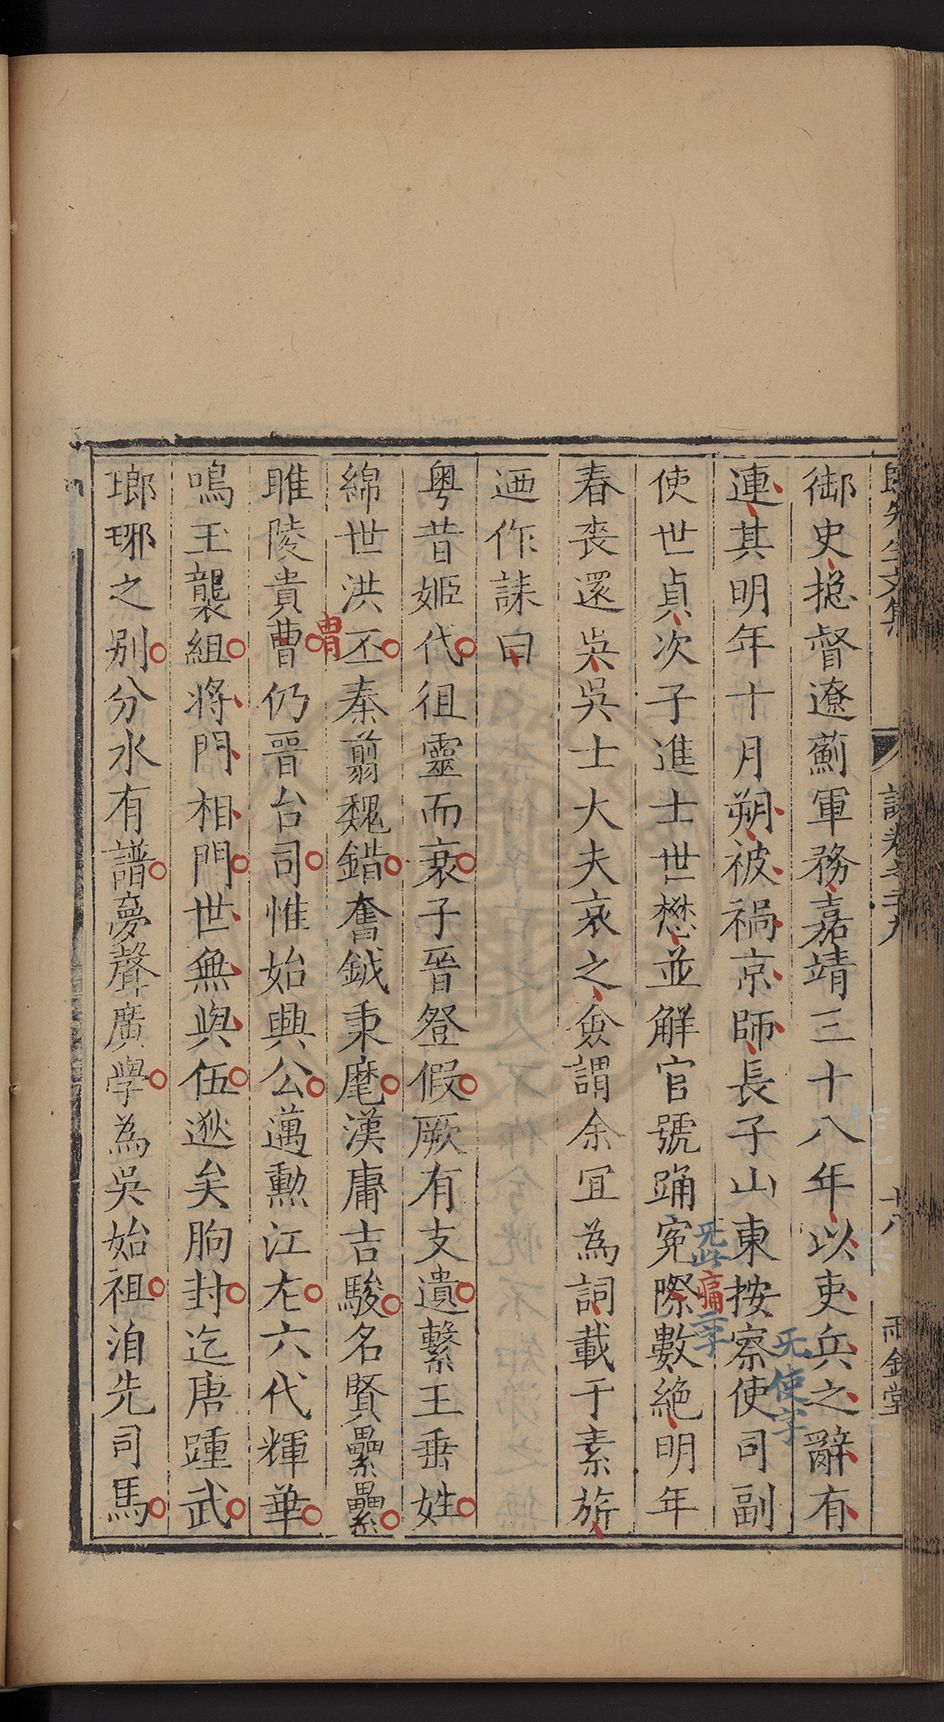 御史揔督遼薊軍務嘉靖三十八年以吏兵之辭有
連其明年十月朔被禍京師長子山東按察使司副
使世貞次子進士世懋並解官號踊寃際數絶明年
春喪還吳吳士大夫哀之僉謂余宜為詞載于素旂
迺作誄曰
粤昔姬代徂靈而衰子晉登假厥有支遺繫王垂姓
綿世洪丕秦翦魏錯奮鉞秉麾漢庸吉駿名賢纍纍
睢陵貴曹仍晉台司惟始興公邁勲江左六代輝華
鳴玉襲組將門相門世無與伍逖矣朐封迄唐踵武
瑯琊之别分水有譜夢聲廣學為吳始祖洎先司馬
胄
无使字
无此
痛
二字
誄卷之十九
十八